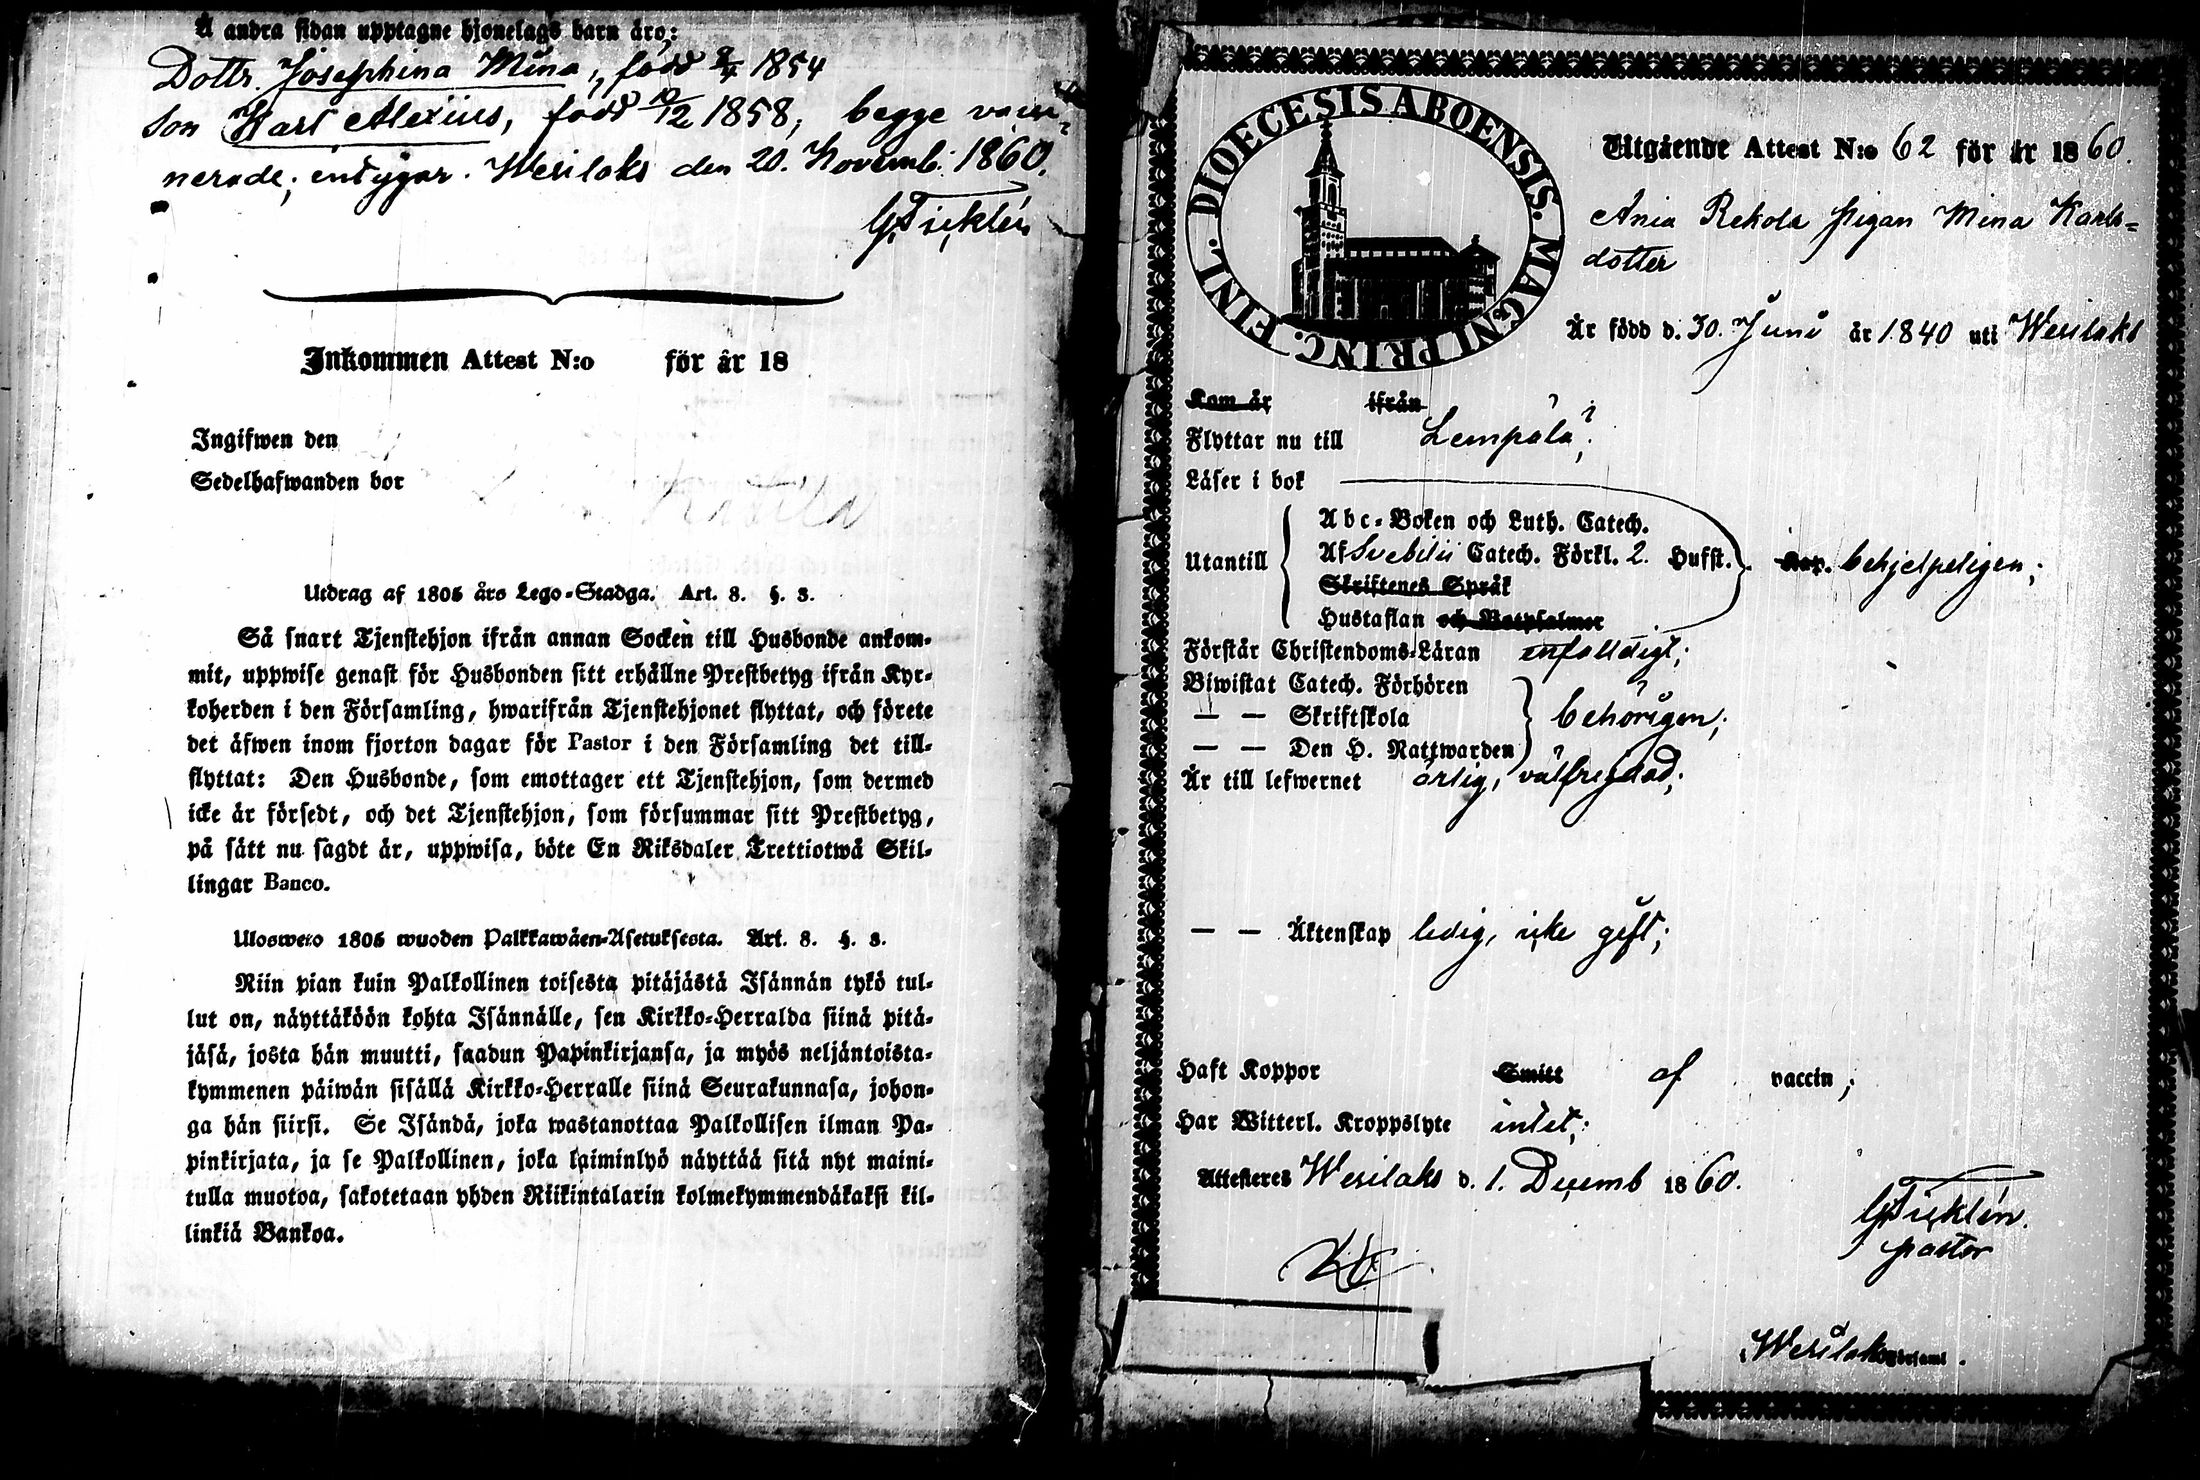 Å andra sidan upptagne hjonelags barn äro;
Dottr. Josephina Mina, född 2/4 1854
son Karl Alexius, född 10/2 1858, begge vacci-
nerade; intygar. Wesilaks den 20. Novemb. 1860.
G. Ticklén
Inkommen Attest N:o för år 18
Ingifwen den
Sedelhafwanden bor
Utdrag af 1805 års Lego-Stadga. Art. 8. §. 3.
Så snart Tjenstehjon ifrån annan Socken till Husbonde ankom-
mit, uppwise genast för Husbonden sitt erhållne Prestbetyg ifrån Kyr-
koherden i den Församling, hwarifrån Tjenstehjonet flyttat, och förete
det äfwen inom fjorton dagar för Pastor i den Församling det till-
flyttat: Den Husbonde, som emottager ett Tjenstehjon, som dermed
icke är försedt, och det Tjenstehjon, som försummar sitt Prestbetyg,
på sätt nu sagdt är, uppwisa, böte En Riksdaler Trettiotwå Skil-
lingar Banco.
Ulosweto 1805 wuoden Palkkawäen-Asetuksesta. Art. 8. §. 3.
Niin pian kuin Palkollinen toisesta pitäjästä Isännän tykö tul-
lut on, näyttäköön kohta Isännälle, sen Kirkko-Herralda siinä pitä-
jäsä, josta hän muutti, saadun Papinkirjansa, ja myös neljäntoista-
kymmenen päiwän sisällä Kirkko-Herralle siinä Seurakunnasa, johon-
ga hän siirsi. Se Isändä, joka wastanottaa Palkollisen ilman Pa-
pinkirjata, ja se Palkollinen, joka laiminlyö näyttää sitä nyt maini-
tulla muotoa, sakotetaan yhden Riikintalarin kolmekymmendäkaksi kil-
linkiä Bankoa.
DIOECESIS ABOENSIS. MAGNI PRINC. FINL.
Utgående Attest N:o 62 för år 1860.
Ania Rekola pigan Mina Karls-
dotter
Är född d. 30. Juni år 1840 uti Wesilaks
Kom år ifrån
Flyttar nu till Lempälä;
Läser i bok
Utantill
Abc-Boken och Luth. Catech.
Af Svebilii Catech. Förkl. 2. Hufst. Kap. behjelpeligen;
Skriftenes Språk
Hustaflan och Botpsalmer
Förstår Christendoms-Läran enfaldigt;
Biwistat Catech. Förhören
— — Skriftskola behörigen;
— — Den H. Nattwarden
Är till lefwernet ärlig, välfrejdad;
— — Äktenskap ledig, icke gift;
Haft Koppor Smitt af vaccin;
Har Witterl. Kroppslyte intet;
Attesteres Wesilaks d. 1. Decemb 1860.
G. Ticklén.
pastor
Wesilaks Församl.